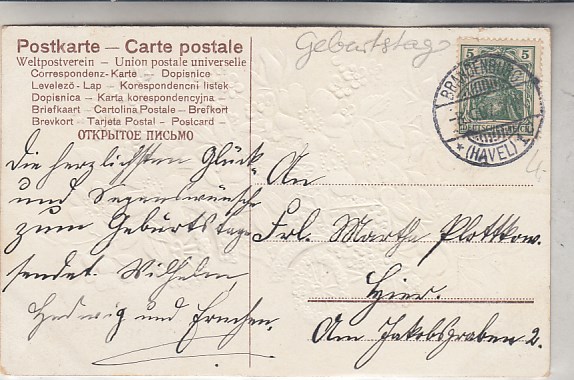 Postkarte — Carte postale
Weltpostverein – Union postale universelle
Correspondenz-Karte – Dopisnice
Levelező-Lap – Korespondencni listek
Dopisnica – Karta korespondencyjna –
Briefkaart – Cartolina Postale – Brefkort
Brevkort – Tarjeta Postal – Postcard –
ОТКРЫТОЕ ПИСЬМО
Geburtstag
5 5
BRANDENBURG
*(HAVEL)*
Die herzlichsten Glück-
und Segenswünsche
zum Geburtstage
sendet Wilhelm,
Hedwig und
An
Frl. Martha Plottkow.
Hier.
Am Jakobsgraben 2.